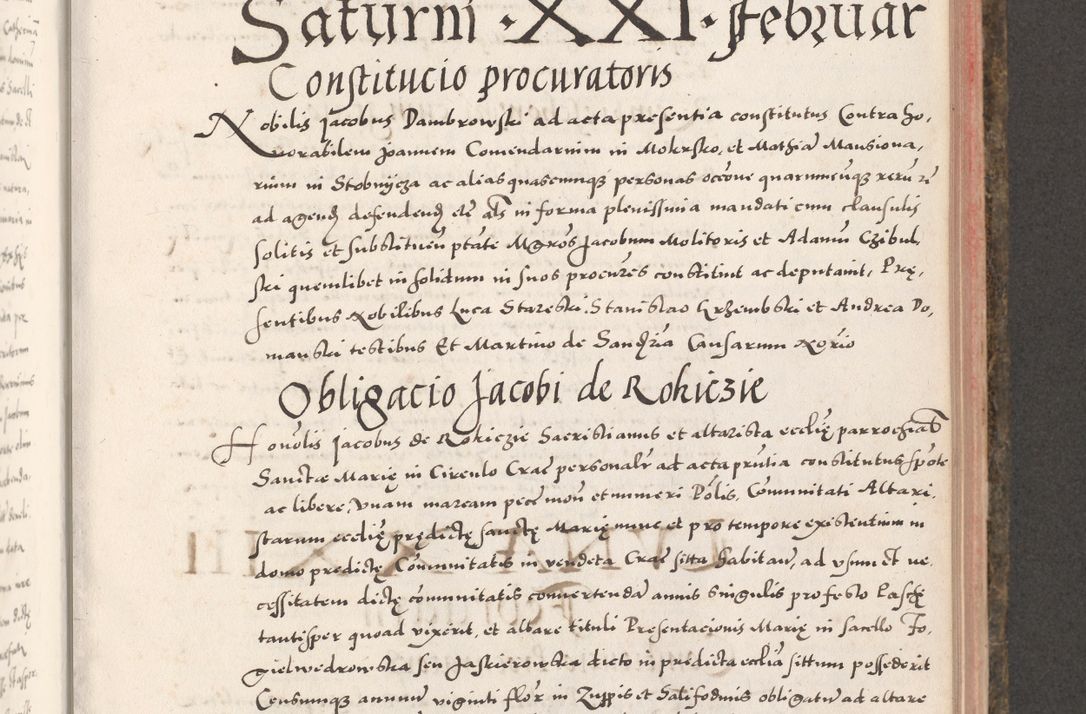 Saturni · XXI · Februar
Constitucio procuratoris
Nobilis Jacobus Dambrowski ad acta presentia constitutus Contra Ho,
norabilem Joannem Comendarium in Mokrsko, et Mathia Mansiona,
rium in Stobnycza ac alias quascumque personas occone quarumcuqz reru re
ad agend defendend etc als in forma plenissima mandati cum clausulis
solitis et substituen ptate Mgros Jacobum Molitoris et Adamu Czibul
ski quemlibet in solidum in suos procures constituit ac deputavit, Prę,
sentibus Nobilibus Luca Starzski, Stanislao Krzembski et Andrea Do,
manski testibus Et Martino de Causarum Norio
Obligacio Jacobi de Rokiczie
Honolis Jacobus de Rokiczie Sacristianus et altarista ecclię parrochiat
Sanctæ Marię in Circulo Crac personalr ad acta pruntia constitutus sponte
ac libere, Unam marcam pece mon et numeri Polis, Communitati Altari,
starum ecclię prędictę sanctę Marię nunc et pro tempore existentium in
domo predictę Communitatis in Crac sitta habitan, ad usum et ne
cessitatem dictę comunitatis convertenda annis singulis pro festo Paschę
tantisper quoad vixerit, et altare tituli Presentacionis Marię in sacello Fo,
gielwedrowska seu Jaskierowska dicto in predicta ecclia sittum possederit
Censumque annuu viginti flor in Zuppis et Salifodinis obligatu ad altare